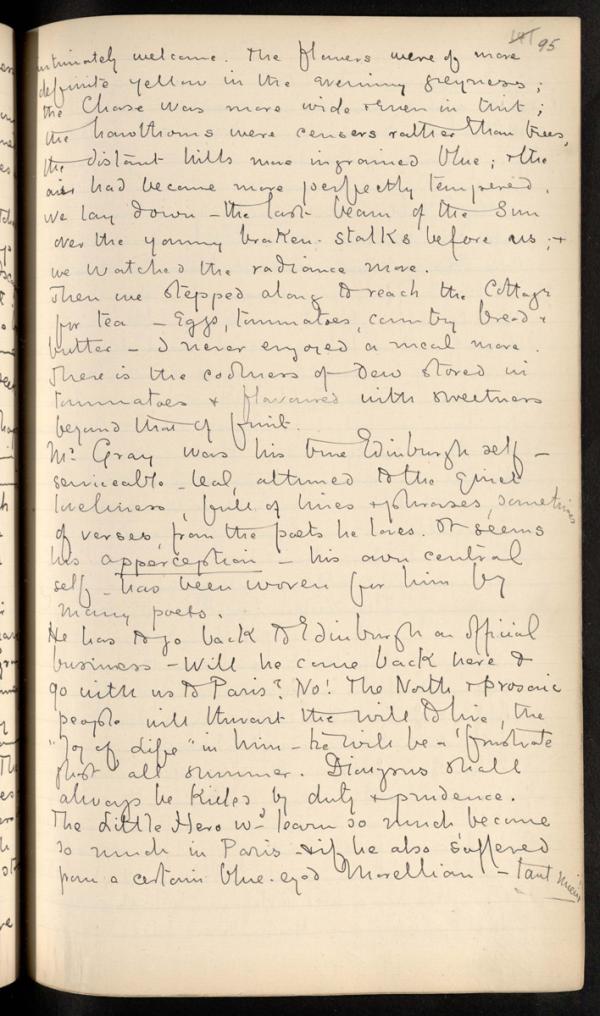 95
intimately welcome. The flowers were of more
definite yellow in the evening greyness;
the Chase was more wide & even in tint;
the hawthorns were censers rather than trees,
the distant hills more ingrained blue; & the
air had become more perfectly tempered.
We lay down – the last beam of the Sun
over the young braken-stalks before us; &
we watched the radiance move.
Then we stepped along to reach the Cottage
for tea – Eggs, tommatoes, country bread &
butter – I never enjoyed a meal more.
There is the coolness of Dew stored in
tommatoes & flavoured with sweetness
beyond that of fruit.
Mr Gray was his true Edinburgh self –
serviceable – leal, attuned to the quiet
loveliness, full of lines & phrases, sometimes
of verses, from the poets he loves. It seems
his apperception – his own central
self – has been woven for him by
many poets.
He has to go back to Edinburgh on official
business – Will he come back here &
go with us to Paris? No! The North & prosaic
people will thwart the will to live, the
"Joy of Life" in him – he will be a frustrate
ghost all summer. Dionysus shall
always be killed by duty & prudence.
The Little Hero wd learn so much become
so much in Paris – & if he also suffered
from a certain blue-eyed Morellian – tant mieux